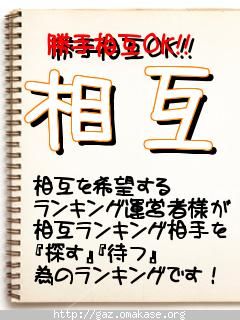 勝手相互OK!!!
相互
相互を希望する
ランキング運営者様が
相互ランキング相手を
『探す』『待つ』
為のランキングです！
http://gaz.omakase.org